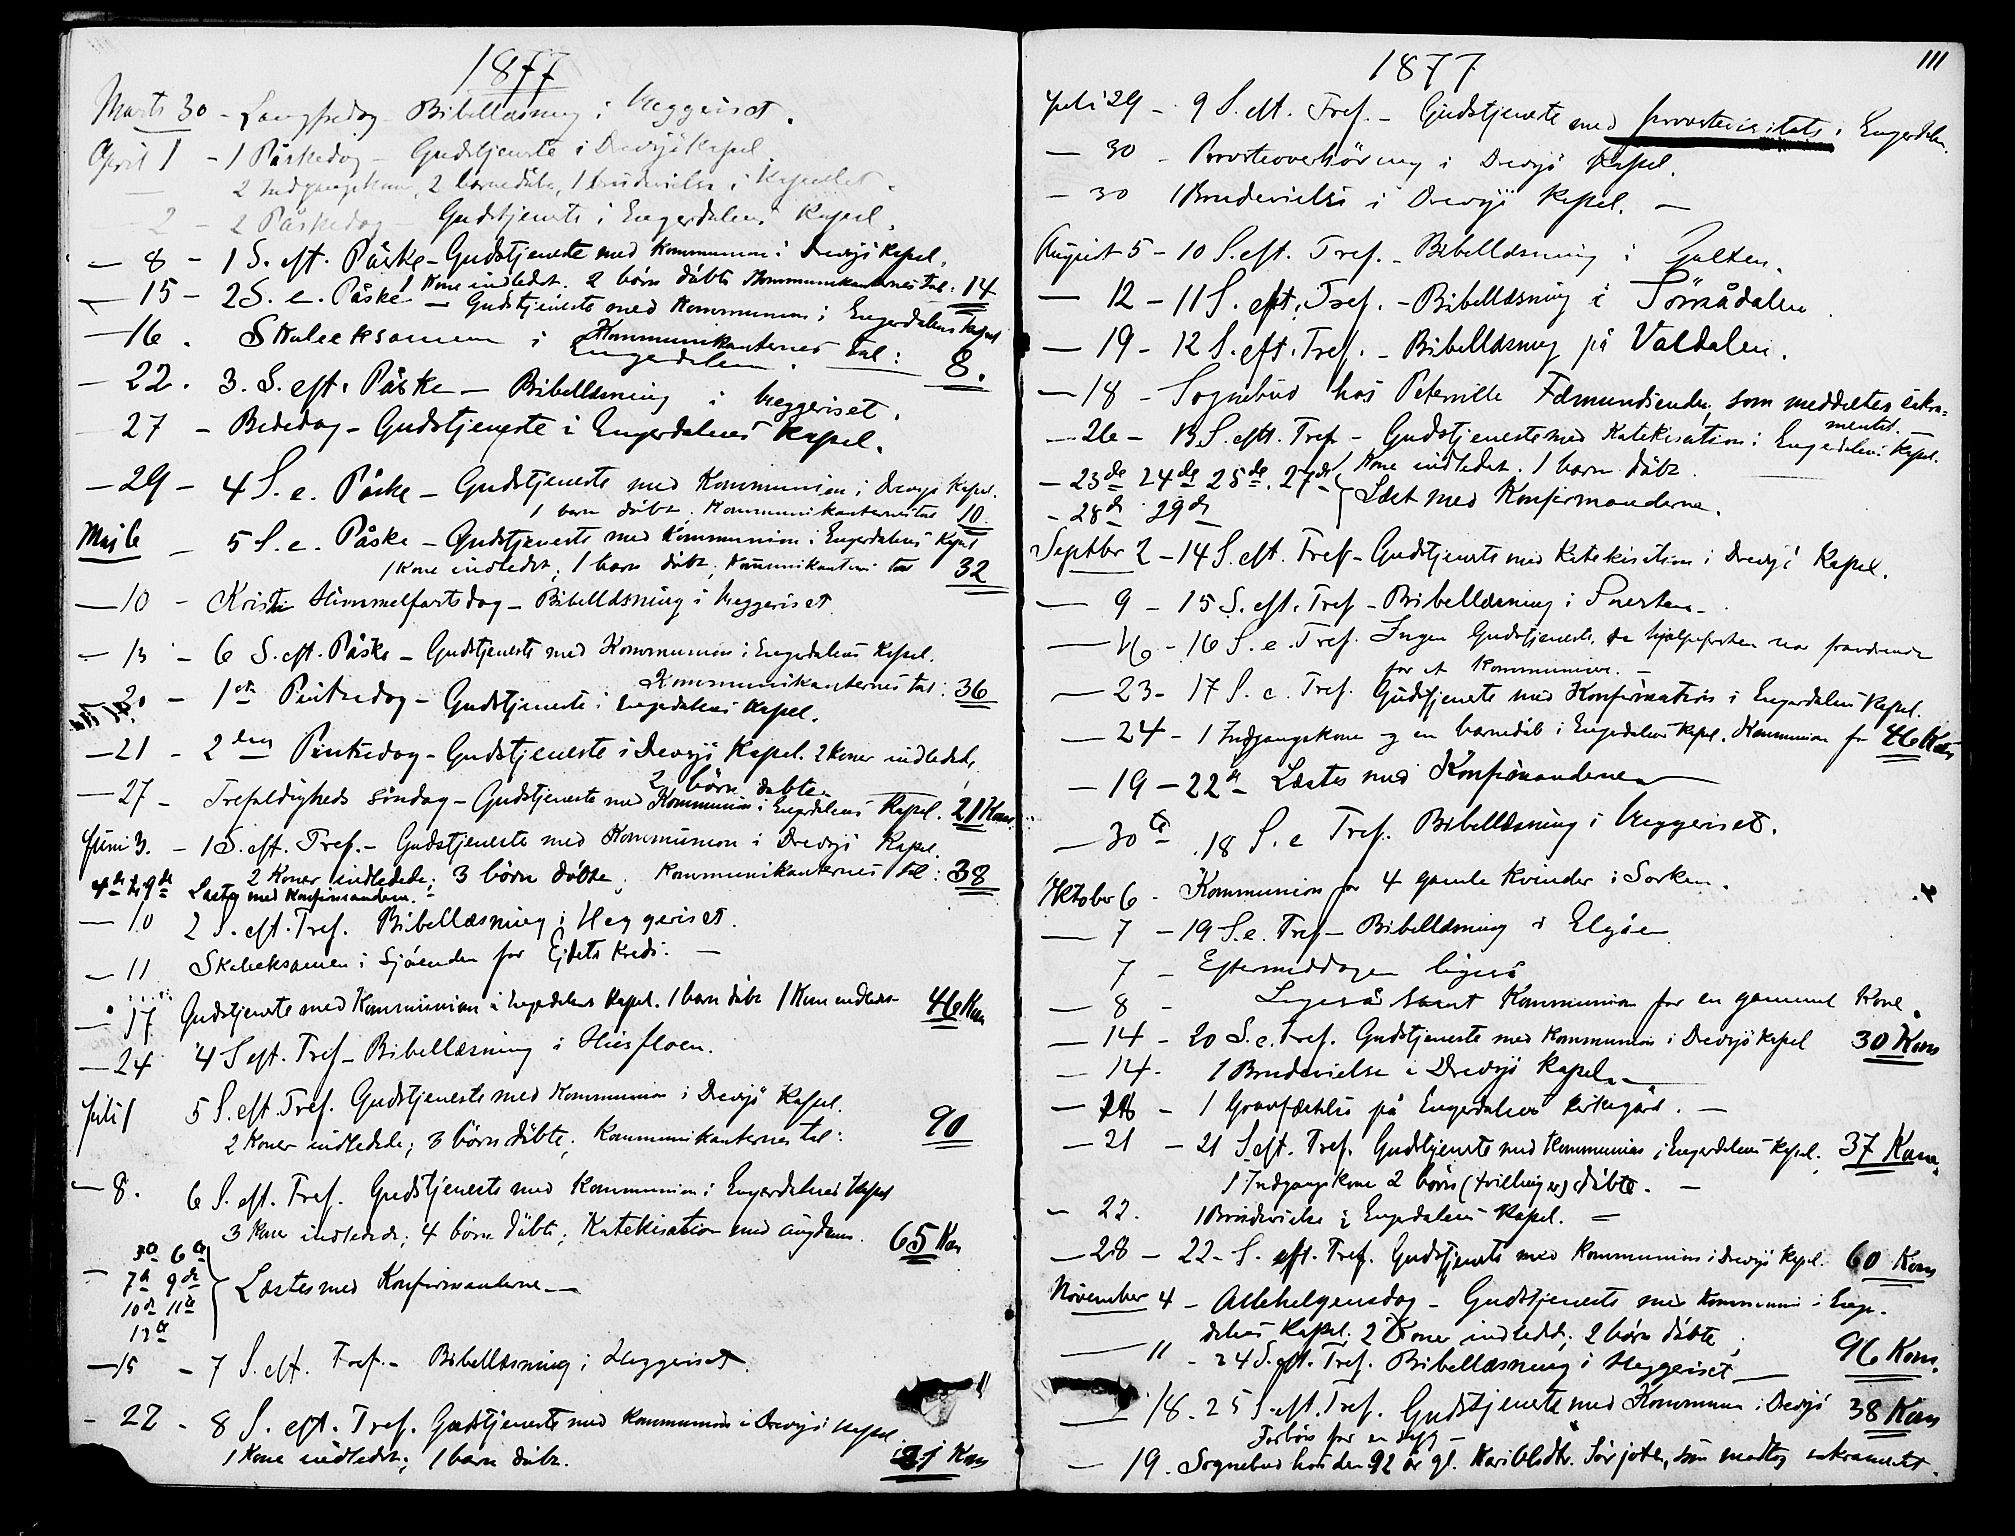 1877
Marts 30 - Langfredag - Bibellæsning i Heggeriset.
April 1 - 1 Påskedag - Gudstjeneste i Drevsjö Kapel.
2 Indgangskoner, 2 barnedåb, 1 brudevielse i Kapellet.
— 2 - 2 Påskedag - Gudstjeneste i Engerdalens Kapel.
— 8 - 1 S. eft. Påske - Gudstjeneste med Kommunion i Drevsjö Kapel.
1 Kone indledet. 2 børn døbte Kommunikanternes tal: 14
— 15 - 2 S. e. Påske - Gudstjeneste med Kommunion i Engerdalens Kapel
Kommunikanternes tal: 8.
— 16. Skoleeksamen i Engerdalen.
— 22. 3. S. eft. Påske - Bibellæsning i Heggeriset.
— 27 - Bededag - Gudstjeneste i Engerdalens Kapel.
— 29 - 4 S. e. Påske - Gudstjeneste med Kommunion i Drevsjö Kapel.
1 barn døbt. Kommunikanternes tal 10.
Maj 6 - 5 S. e. Påske - Gudstjeneste med Kommunion i Engerdalens Kapel
1 Kone indledet, 1 barn døbt, Kommunikanternes tal 32
— 10 - Kristi Himmelfartsdag - Bibellæsning i Heggeriset.
— 13 - 6 S. eft. Påske - Gudstjeneste med Kommunion i Engerdalens Kapel.
Kommunikanternes tal: 36
20 - 1ste Pintsedag - Gudstjeneste i Engerdalens Kapel.
— 21 - 2den Pintsedag - Gudstjeneste i Drevsjö Kapel. 2 koner indledede,
2 børn døbte
— 27 - Trefoldigheds söndag - Gudstjeneste med Kommunion i Engerdalens Kapel. 21 Kom.
Juni 3. - 1 S. eft. Tref. - Gudstjeneste med Kommunion i Drevsjö Kapel.
2 Koner indledede; 3 børn døbte; Kommunikanternes tal: 38
4de til 9de Læstes med Konfirmanderne.
— 10 2 S. eft. Tref. Bibellæsning i Heggeriset.
— 11 Skoleeksamen i Sjöenden for Ejdets Kreds. —
— 17 Gudstjeneste med Kommunion i Engerdalens Kapel. 1 barn døbt 1 Kone indledet 46 Kom
— 24 4 S eft. Tref - Bibellæsning i Husfloen.
Juli 1 5 S. eft Tref. Gudstjeneste med Kommunion i Drevsjö Kapel.
2 Koner indledede; 3 børn døbte; Kommunikanternes tal: 90
— 8. 6 S. eft. Tref. Gudstjeneste med Kommunion i Engerdalens Kapel
3 Koner indledede; 4 børn døbte; Katekisation med ungdom. 65 Kom
3de 6te
— 7de 9de Læstes med Konfirmanterne —
10de 11te
12te
— 15 - 7 S. eft. Tref. - Bibellæsning i Heggeriset.
— 22 - 8 S. eft. Tref. Gudstjeneste med Kommunion i Drevsjö Kapel
1 Kone indledet; 1 barn døbt. 31 Kom
111
1877
Juli 29 - 9 S. eft. Tref. - Gudstjeneste med provstevisitats i Engerdalen.
— 30 - Provsteoverhöring i Drevsjö Kapel.
— 30 1 Brudevielse i Drevsjö Kapel. —
August 5 - 10 S. eft. Tref. - Bibellæsning i Galten.
— 12 - 11 S. eft. Tref. - Bibellæsning i Sömådalen.
— 19 - 12 S. eft. Tref. - Bibellæsning på Valdalen.
— 18 - Sognebud hos Peternille Fæmundsenden, som meddeltes sakra-
mentet. —
— 26 - 13 S. eft. Tref - Gudstjeneste med Katekisation i Engerdalens Kapel.
1 Kone indledet. 1 barn døbt.
— 23de 24de 25de. 27de Læst med Konfirmanderne.
- 28de 29de
Septbr 2 - 14 S. eft. Tref - Gudstjeneste med Katekisation i Drevsjö Kapel.
— 9 - 15 S. eft. Tref - Bibellæsning i Snerten -
— 16 - 16 S. e. Tref. Ingen Gudstjeneste, da hjælpepresten var fraværende
for at kommunicere. —
— 23 - 17 S. e. Tref. Gudstjeneste med Konfirmation i Engerdalens Kapel.
— 24 - 1 Indgangskone og en barnedåb i Engerdalens Kapel. Kommunion for 46 Kom
— 19 - 22de Læstes med Konfirmanderne
— 30te 18 S. e Tref. Bibellæsning i Heggeriset.
Oktober 6 - Kommunion for 4 gamle kvinder i Sorken.
— 7 - 19 S. e. Tref - Bibellæsning i Elgåen
7 - Eftermiddagen ligeså
— 8 - Ligeså samt Kommunion for en gammel Kone.
— 14 - 20 S. e. Tref. Gudstjeneste med Kommunion i Drevsjö Kapel 30 Kom
— 14. 1 Brudevielse i Drevsjö Kapel. —
— - 1 Gravfæstelse på Engerdalens kirkegård. —
— 21 - 21 S. eft. Tref. Gudstjeneste med Kommunion i Engerdalens Kapel. 37 Kom.
1 Indgangskone 2 børn (tvillinger) døbte. —
— 22. 1 Brudevielse i Engerdalens Kapel. —
— 28 - 22 - S. eft. Tref. Gudstjeneste med Kommunion i Drevsjö Kapel. 60 Kom
November 4 - Allehelgensdag - Gudstjeneste med Kommunion i Enger-
dalens Kapel; 2 Koner indledd; 2 børn døbte; 96 Kom.
— 11 - 24 S. eft. Tref. Bibellæsning i Heggeriset —
— 18. 25 S. eft. Tref. Gudstjeneste med Kommunion i Drevsjö 38 Kom
Forbön for en syg —
— 19. Sognebud hos den 92 år gl. Kari, som modtog sakramentet.